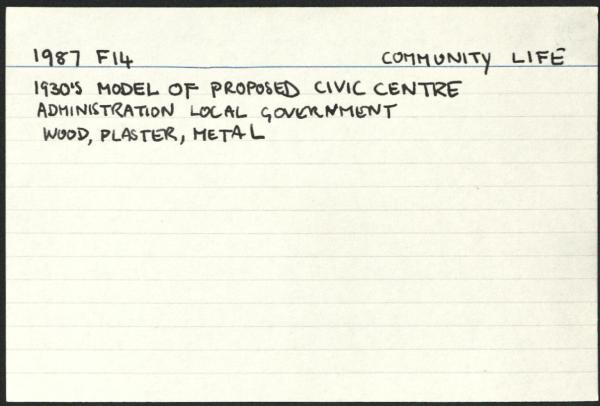 1987 F14 COMMUNITY LIFE
1930'S MODEL OF PROPOSED CIVIC CENTRE
ADMINISTRATION LOCAL GOVERNMENT
WOOD, PLASTER, METAL